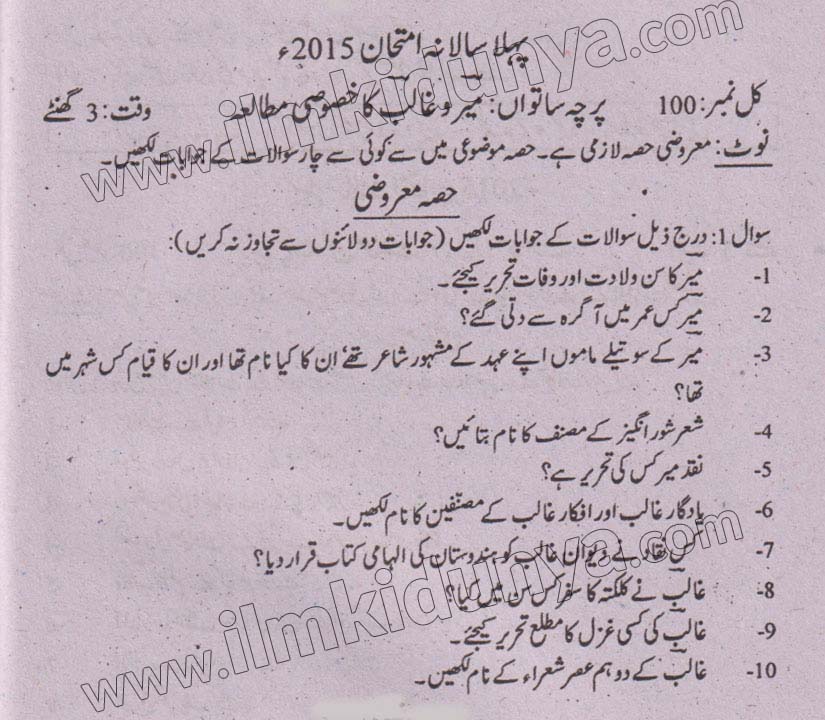 پہلا سالانہ امتحان 2015ء
کل نمبر: 100 پرچہ ساتواں: میر و غالب کا خصوصی مطالعہ وقت: 3 گھنٹے
نوٹ: معروضی حصہ لازمی ہے۔ حصہ موضوعی میں سے کوئی سے چار سوالات کے جوابات لکھیں۔
حصہ معروضی
سوال 1: درج ذیل سوالات کے جوابات لکھیں (جوابات دو لائنوں سے تجاوز نہ کریں):
1- میر کا سن ولادت اور وفات تحریر کیجئے۔
2- میر کس عمر میں آگرہ سے دتی گئے؟
3- میر کے سوتیلے ماموں اپنے عہد کے مشہور شاعر تھے‘ ان کا کیا نام تھا اور ان کا قیام کس شہر میں
تھا؟
4- شعر شور انگیز کے مصنف کا نام بتائیں؟
5- نقد میر کس کی تحریر ہے؟
6- یادگار غالب اور افکار غالب کے مصنفین کا نام لکھیں۔
7- کس نقاد نے دیوان غالب کو ہندوستان کی الہامی کتاب قرار دیا؟
8- غالب نے کلکتہ کا سفر کس سن میں کیا؟
9- غالب کی کسی غزل کا مطلع تحریر کیجئے۔
10- غالب کے دو ہم عصر شعراء کے نام لکھیں۔
www.ilmkidunya.com
www.ilmkidunya.com